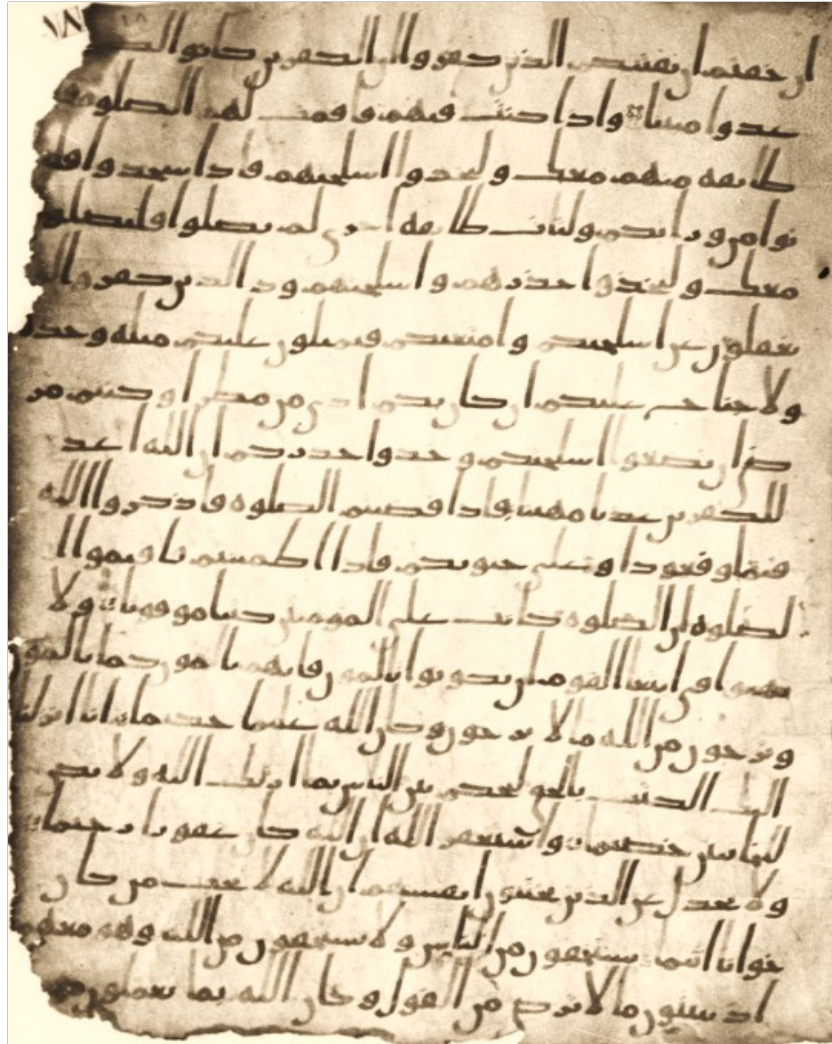 ان خفتم ان يفتنكم الذين كفروا ان الكفرين كانوا لكم
عدوا مبينا واذا كنت فيهم فاقمت لهم الصلوه
طايفه منهم معك وليخذوا اسلحتهم فاذا سجدوا فليكو
نوا من ورايكم ولتات طايفه اخرى لم يصلوا فليصلوا
معك وليخذوا حذرهم واسلحتهم ود الذين كفروا لو
تغفلون عن اسلحتكم وامتعتكم فيميلون عليكم ميله وحده
ولا جناح عليكم ان كان بكم اذى من مطر او كنتم مر
ضى ان تضعوا اسلحتكم وخذوا حذركم ان الله اعد
للكفرين عذابا مهينا فاذا قضيتم الصلوه فاذكروا الله
قيما وقعودا وعلى جنوبكم فاذا اطمننتم فاقيموا ا
لصلوه ان الصلوه كانت على المومنين كتبا موقوتا ولا
تهنوا في ابتغا القوم ان تكونوا تالمون فانهم يالمون كما تالمو
ن وترجون من الله ما لا يرجون وكان الله عليما حكيما انا انزلنا
اليك الكتب بالحق لتحكم بين الناس بما اريك الله ولا تكن
للخاينين خصيما واستغفر الله ان الله كان غفورا رحيما
ولا تجدل عن الذين يختنون انفسهم ان الله لا يحب من كان
خوانا اثيما يستخفون من الناس ولا يستخفون من الله وهو معهم
اذ يبيتون ما لا يرضى من القول وكان الله بما يعملون